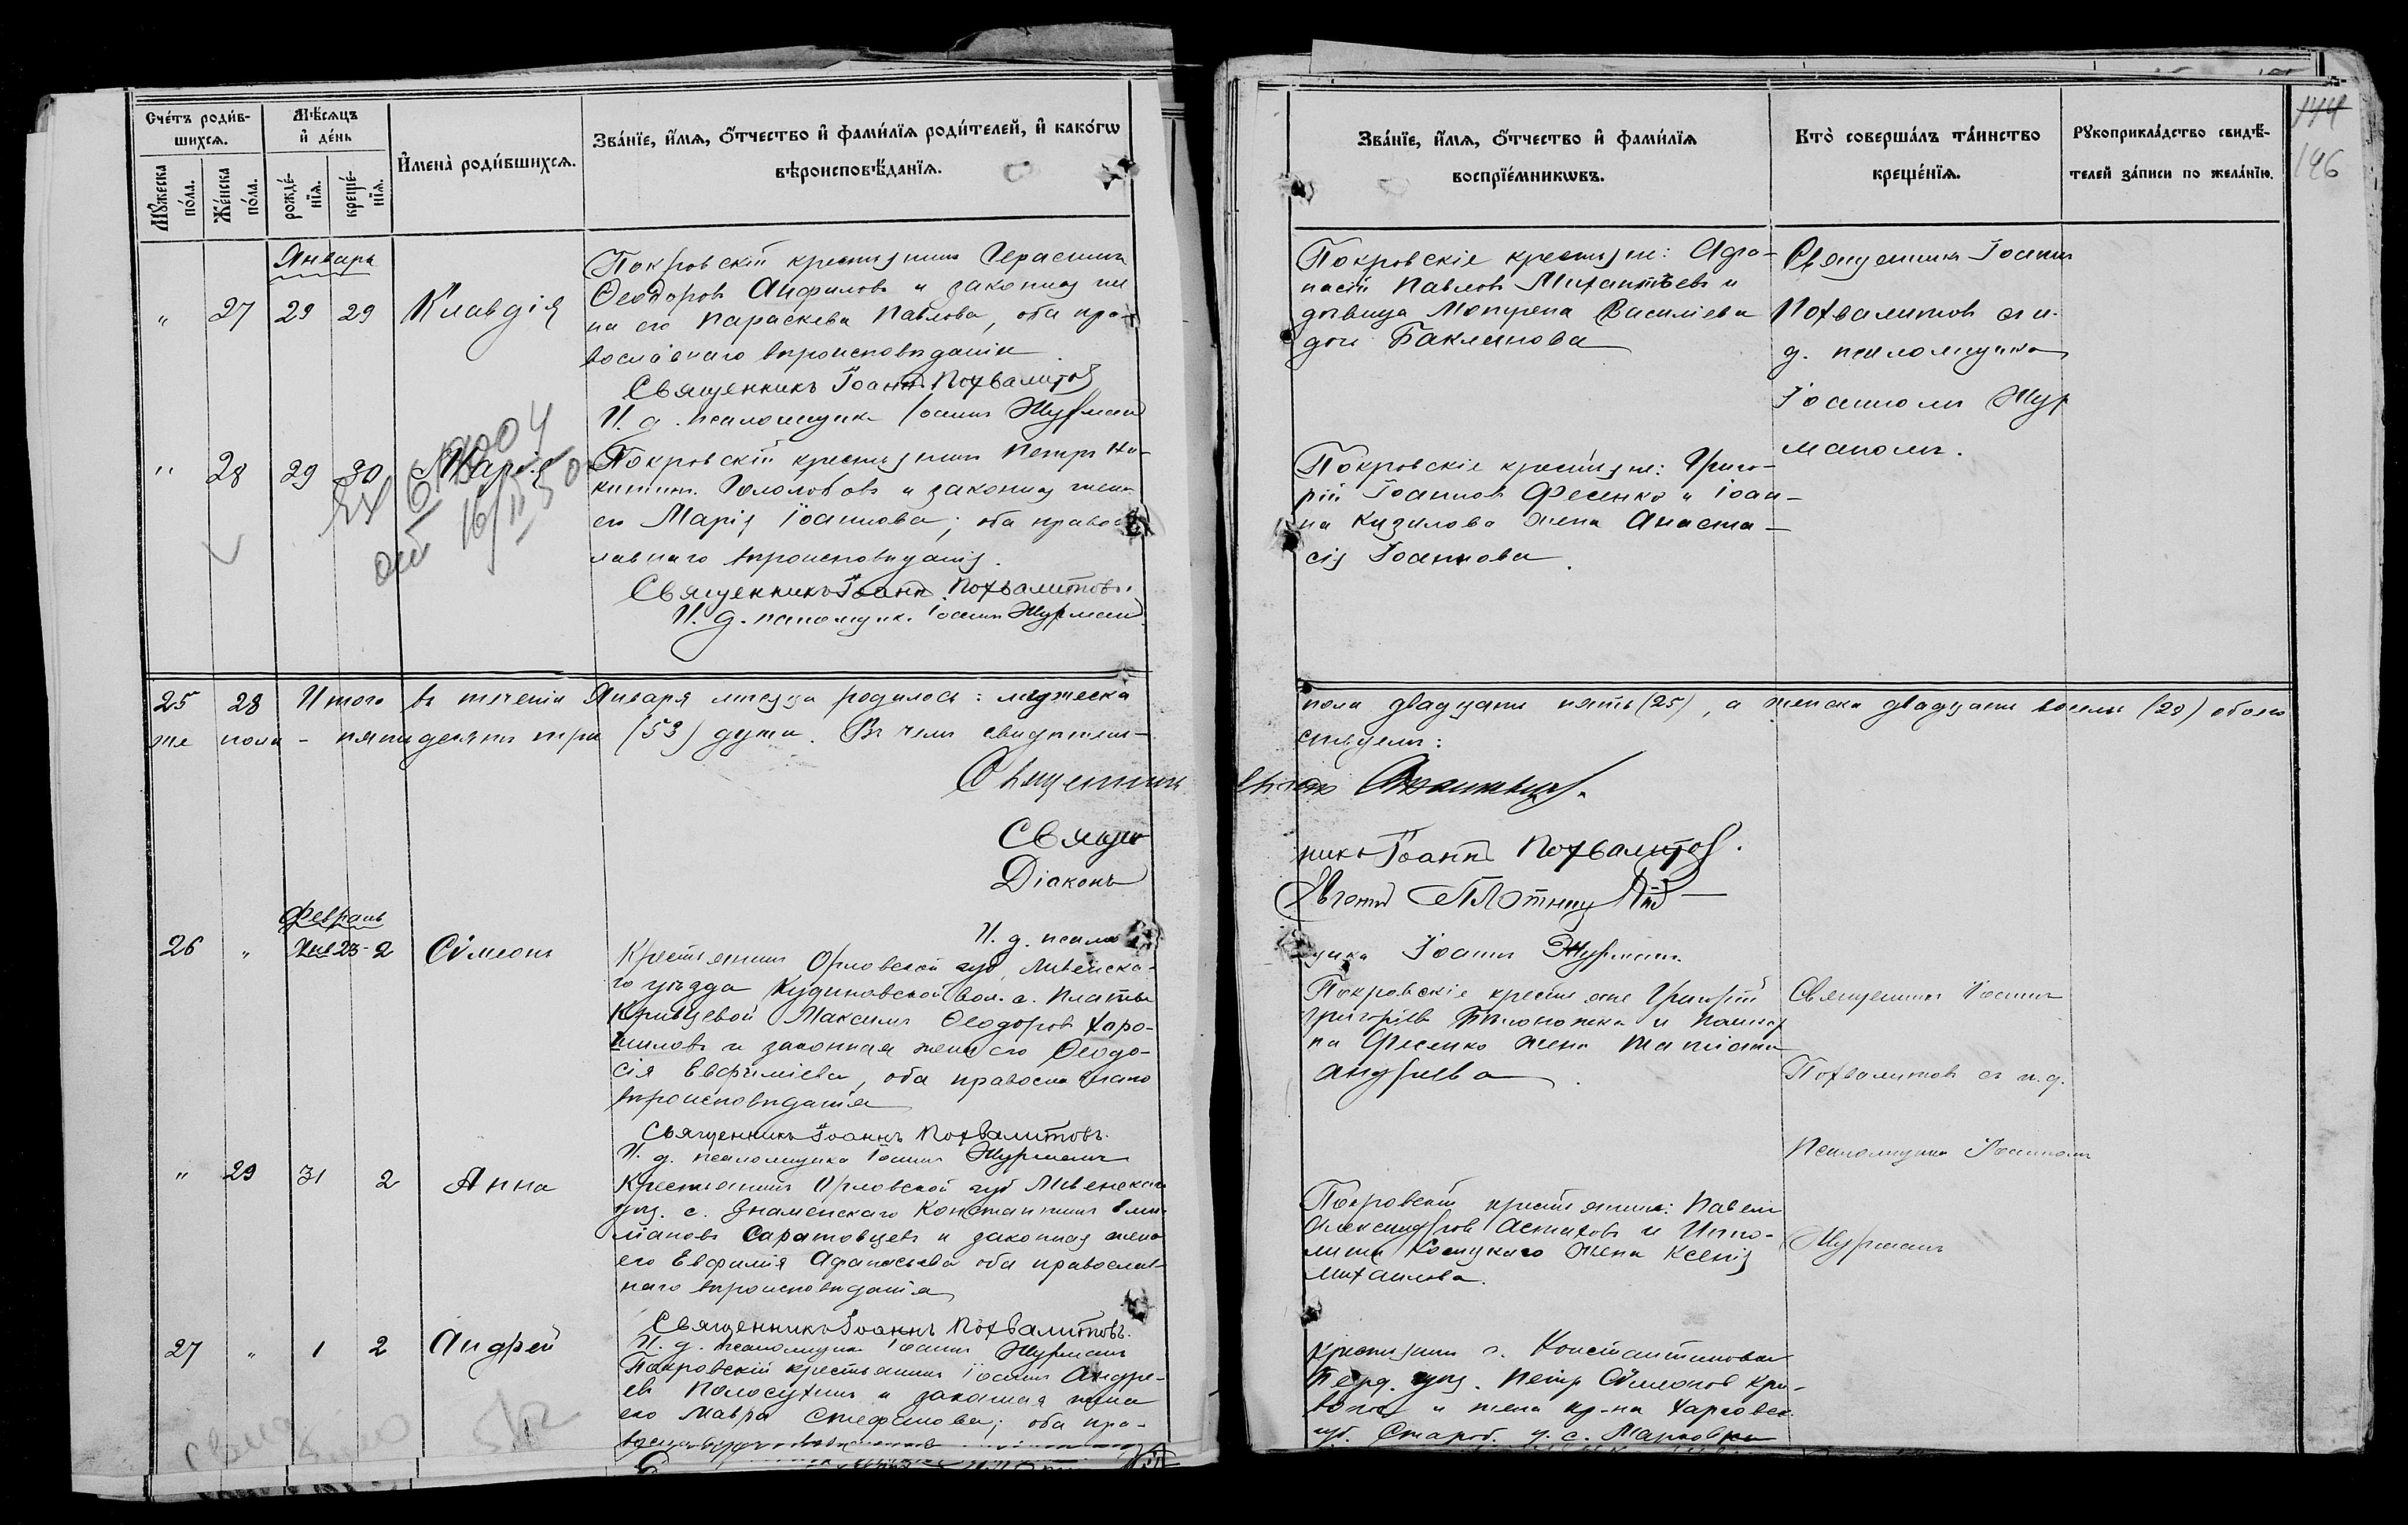 Счетъ родив-
шихся.
Мѣсяцъ
и день
Имена родившихся.
Званіе, имя, отчество и фамилія родителей, и какогѡ
вѣроисповѣданія.
Мужеска
пола.
Женска
пола.
рожде-
нія.
креще-
нія.
Январь
" 27 29 29 Клавдія
Покровскій крестьянинъ Герасимъ
Ѳеодоровъ Анфиловъ и законная же
на его Параскева Павлова, оба пра-
вославнаго вѣроисповѣданія
Священникъ Іоаннъ Похвалитовъ
И. д. псаломщика Іоаннъ Журманъ
" 28 29 30 Марія
от 16/II 50
Покровскій крестьянинъ Петръ Ни-
китинъ Гололобовъ и законная жена
его Марія Іоаннова; оба правос
лавнаго вѣроисповѣданія.
Священникъ Іоаннъ Похвалитовъ.
И. д. псаломщик. Іоаннъ Журманъ
25 28 Итого въ теченіи Января мѣсяца родилось: мужеска
же пола - пятьдесятъ три (53) души. Въ чемъ свидѣтель-
Священникъ
Священ
Діаконъ
И. д. псалом
Февраль
26 " Янв 23 - 2 Сѵмеонъ
Крестьянинъ Орловской губ, Ливенска-
го уѣзда Кудиновской вол. с. Платы
Кривцевой Максимъ Ѳеодоровъ Харо-
шиловъ и законная жена его Ѳеодо-
сія Евфиміева, оба православнаго
вѣроисповѣданія
Священникъ Іоаннъ Похвалитовъ.
И. д. псаломщика Іоаннъ Журманъ
" 29 31 2 Анна
Крестьянинъ Орловской губ Ливенскаго
уѣз. с. Знаменскаго Константинъ Еми-
ліановъ Саратовцевъ и законная жена
его Евфимія Афанасьева оба православ-
наго вѣроисповѣданія
Священникъ Іоаннъ Похвалитовъ.
И. д. псаломщика Іоаннъ Журманъ
27 " 1 2 Андрей
Покровскій крестьянинъ Іоаннъ Андре-
евъ Полосухинъ и законная жена
его Мавра Стефанова; оба пра-
Званіе, имя, отчество и фамилія
воспріемникѡвъ.
Кто совершалъ таинство
крещенія.
Рукоприкладство свидѣ-
телей записи по желанію.
144
146
Покровскіе крестьяне: Афа-
насій Павловъ Михантьевъ и
дѣвица Матрена Василіева
дочь Бакланова
Священникъ Іоаннъ
Похвалитовъ съ и.
д. псаломщика
Іоанномъ Жур
маномъ.
Покровскіе крестьяне: Григо-
рій Іоанновъ Фесенко и Іоан-
на Кизилова жена Анаста-
сія Іоаннова.
пола двадцать пять (25), а женска двадцать восемь (28) обоего
ствуемъ:
никъ Іоаннъ Похвалитовъ.
Евгеній
щика Іоаннъ Журманъ.
Покровскіе крестьяне Григорій
Григорьевъ Бѣлоножка и
на Фесенко жена Татіана
Андреева.
Священникъ Іоаннъ
Похвалитовъ съ и. д.
Псаломщика Іоанномъ
Журманъ
Покровскій крестьянинъ: Павелъ
Александровъ Астаховъ и Иппо-
лита Косицкаго жена Ксенія
Михаилова.
Крестьянинъ с. Константиновки
Берд. уѣз. Петръ Сѵмеоновъ Кри-
воно и жена кр-на Харьковск.
губ. Староб. у. с. Марковки